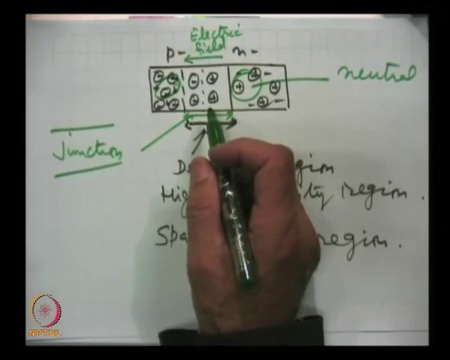 Electric
field
p- n-
neutral
Junction
region
region.
region.
NPTEL